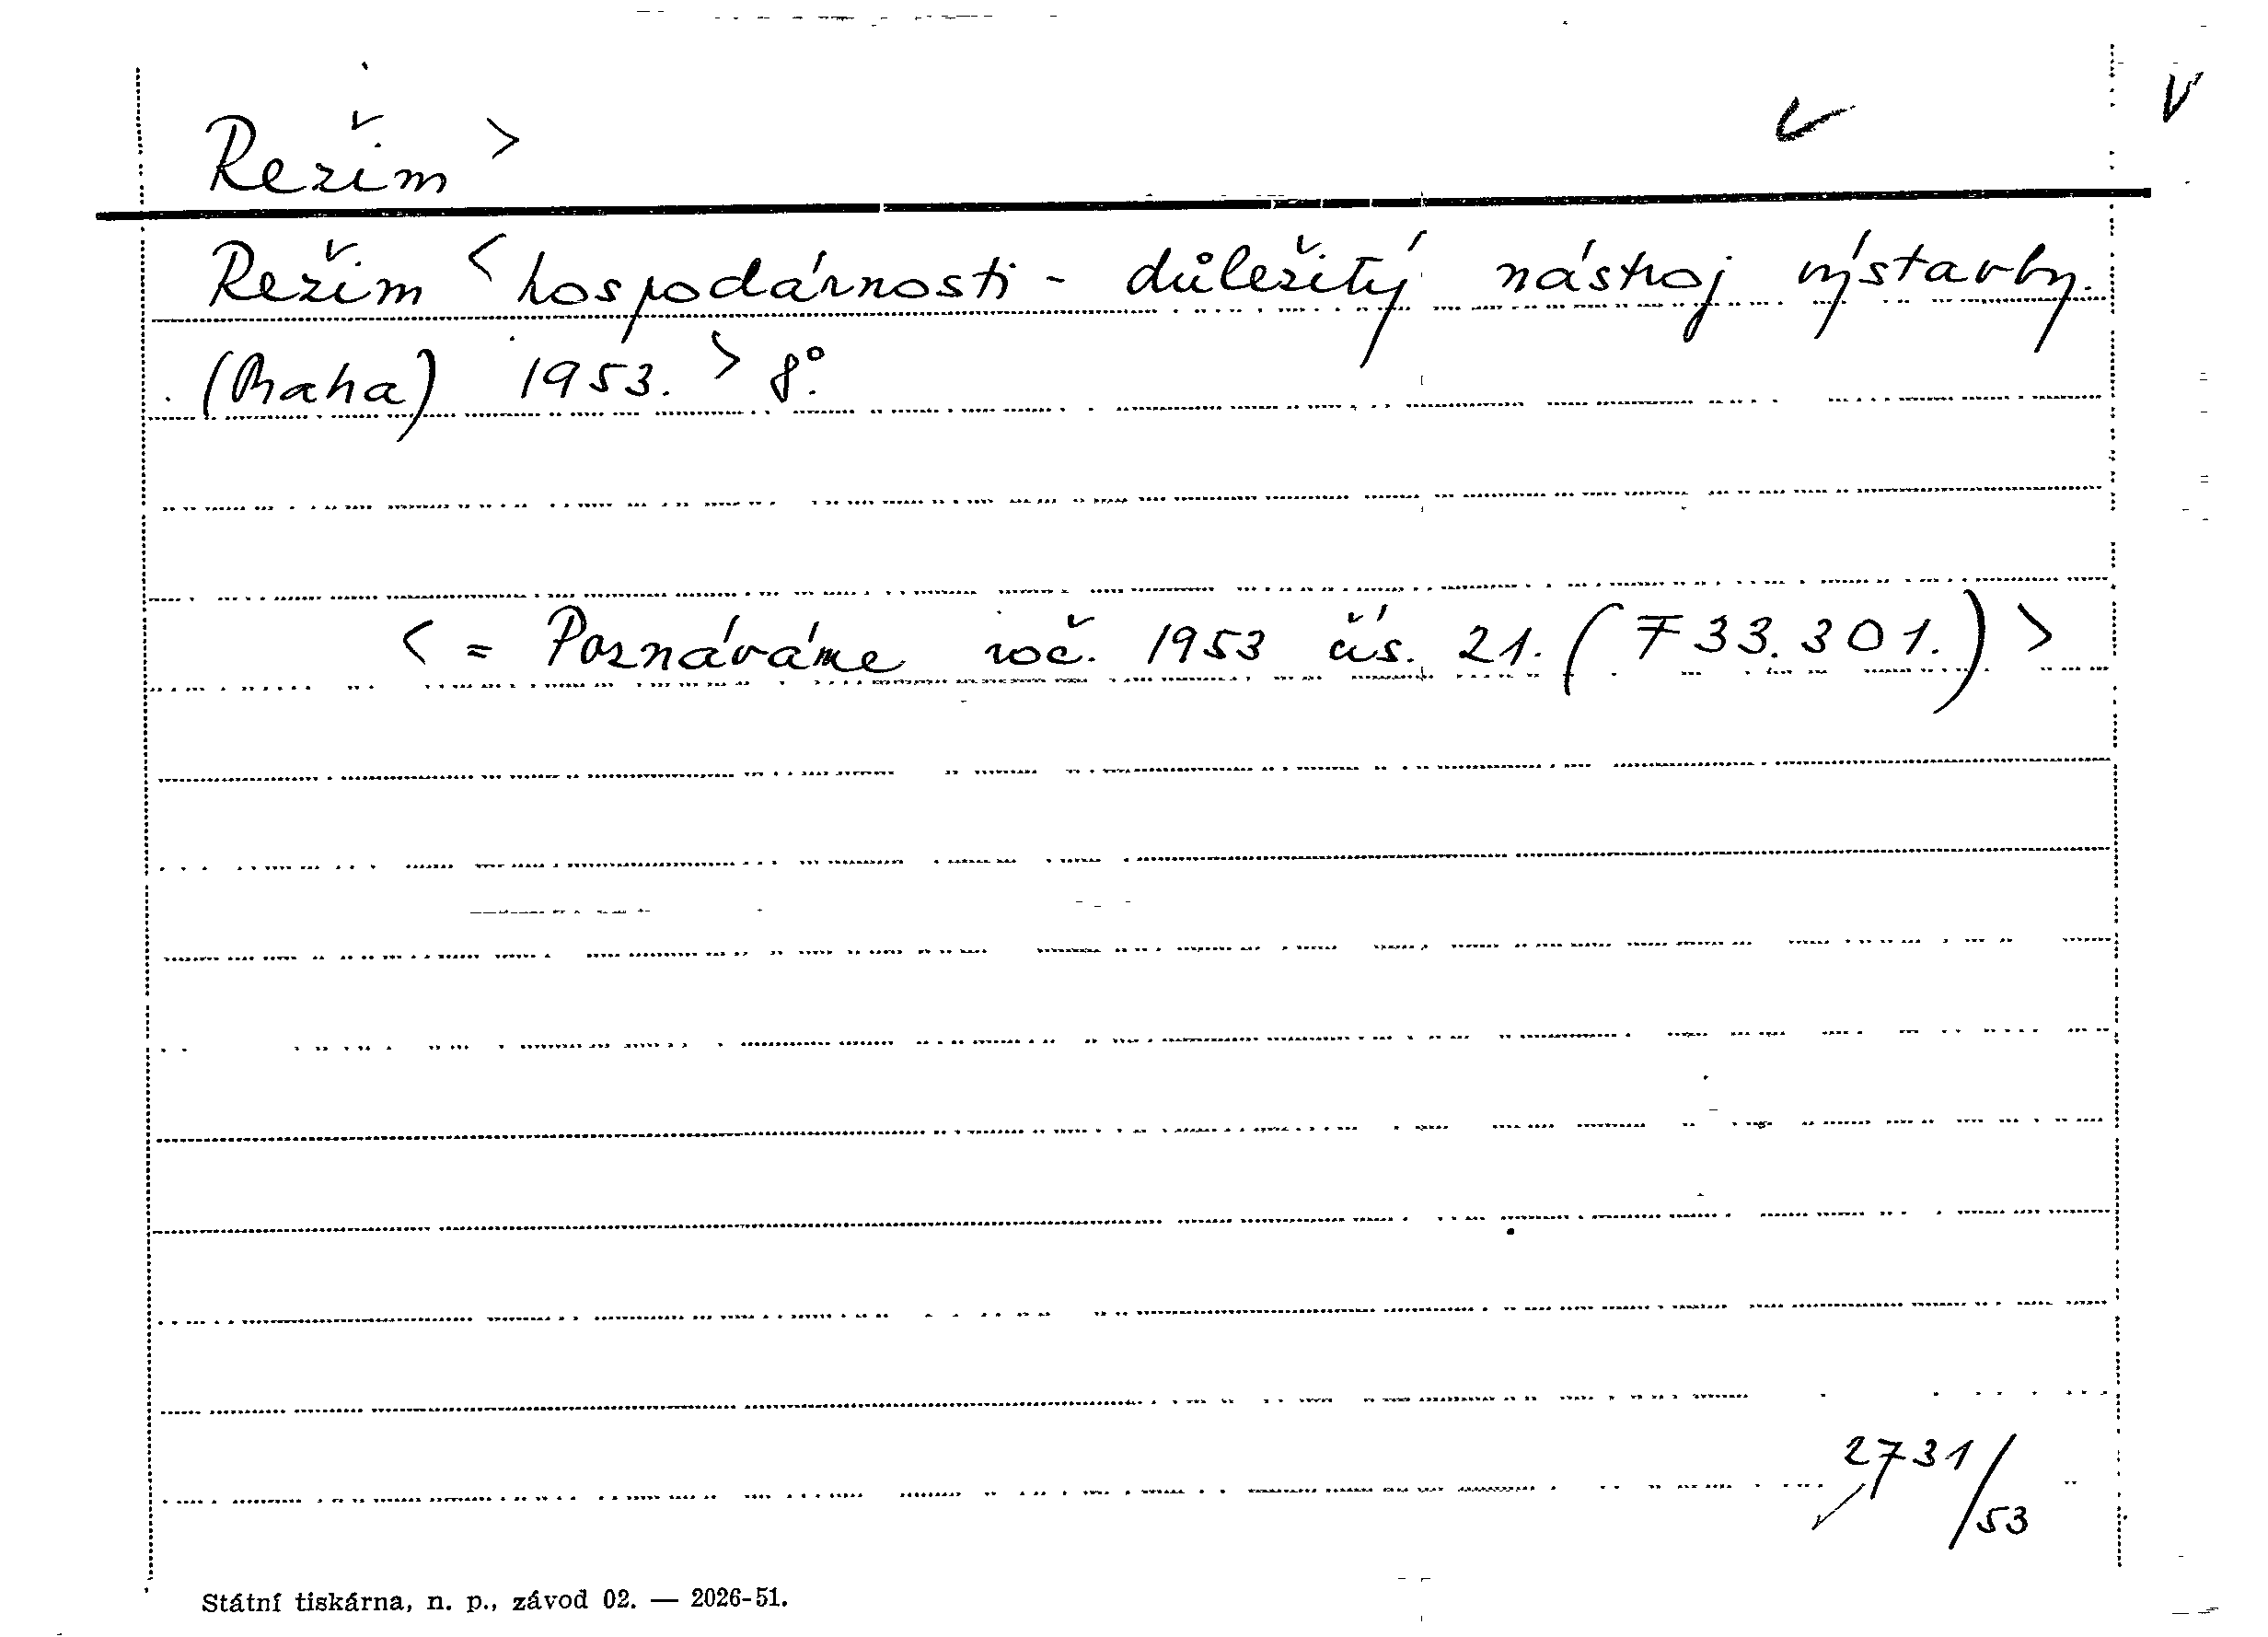 Režim >
Režim < hospodárnosti - důležitý nástroj výstavby.
(Praha) 1953. > 8°.
< = Poznáváme roč. 1953 čís. 21. (F 33.301.) >
2731/53
Státní tiskárna, n. p., závod 02. — 2026-51.